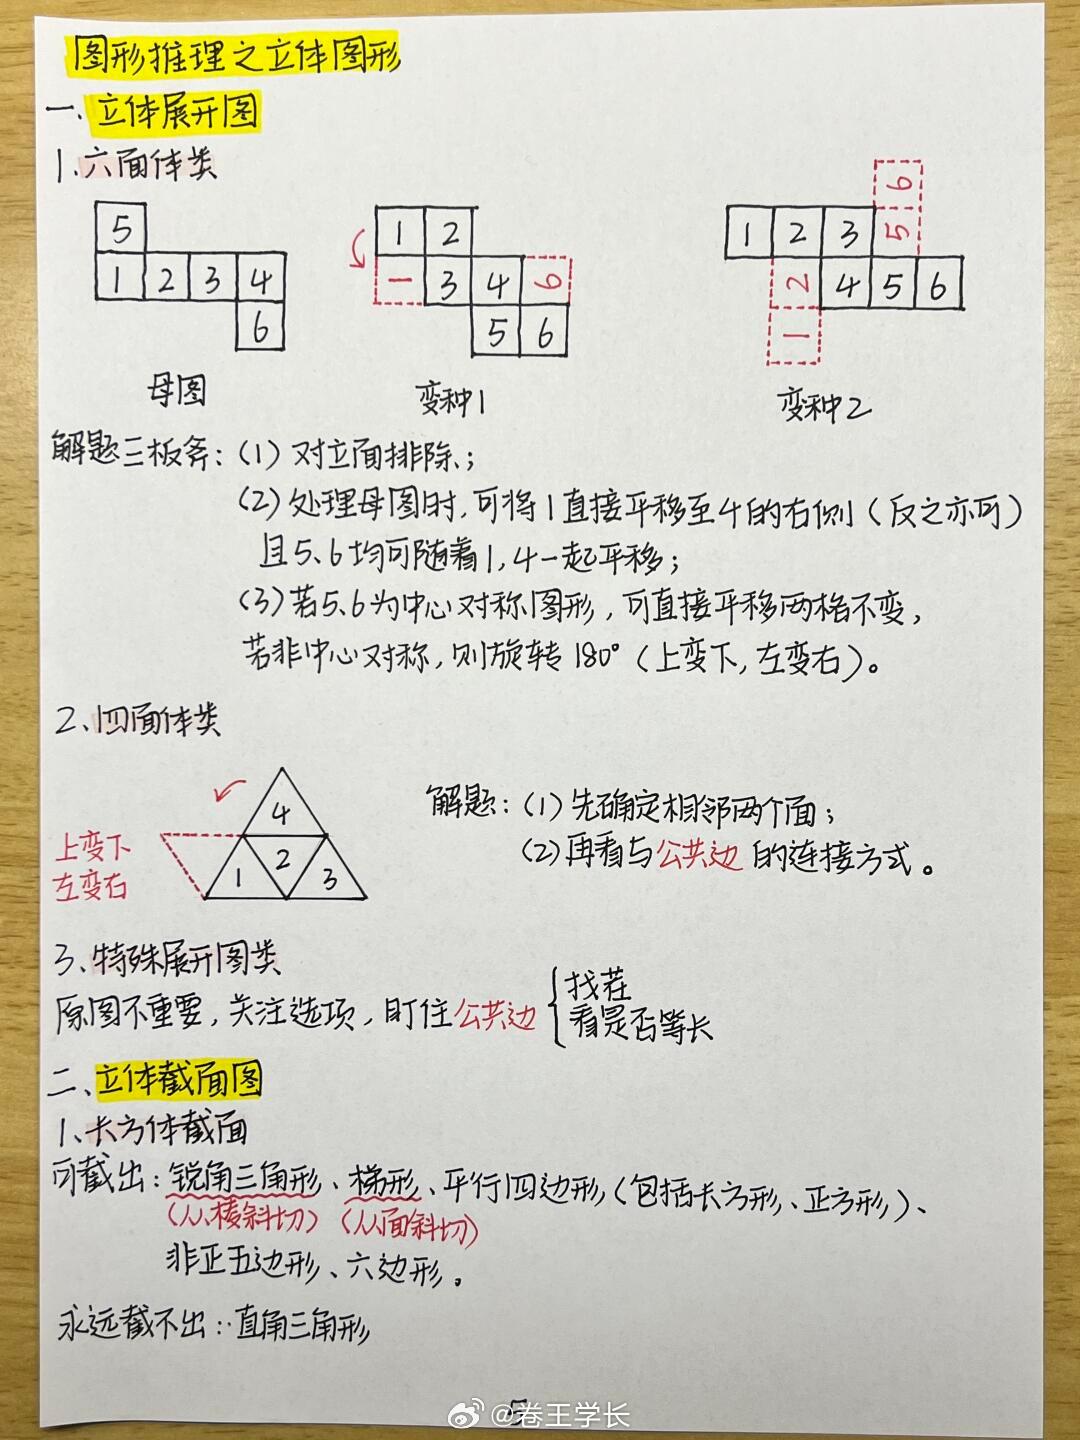 图形推理之立体图形
一、立体展开图
1.六面体类
5
1 2 3 4
6
母图
1 2
1 3 4 6
5 6
变种1
6
1 2 3 5
2 4 5 6
1
变种2
解题三板斧：(1)对立面排除；
(2)处理母图时，可将1直接平移至4的右侧（反之亦可）
且5、6均可随着1，4一起平移；
(3)若5、6为中心对称图形，可直接平移两格不变，
若非中心对称，则旋转180°（上变下，左变右）。
2、四面体类
上变下
左变右
4
1 2 3
解题：(1)先确定相邻两个面；
(2)再看与公共边的连接方式。
3、特殊展开图类
原图不重要，关注选项，盯住公共边
找茬
看是否等长
二、立体截面图
1、长方体截面
可截出：锐角三角形、梯形、平行四边形（包括长方形、正方形）、
（从棱斜切）（从面斜切）
非正五边形、六边形。
永远截不出：直角三角形
5
@卷王学长